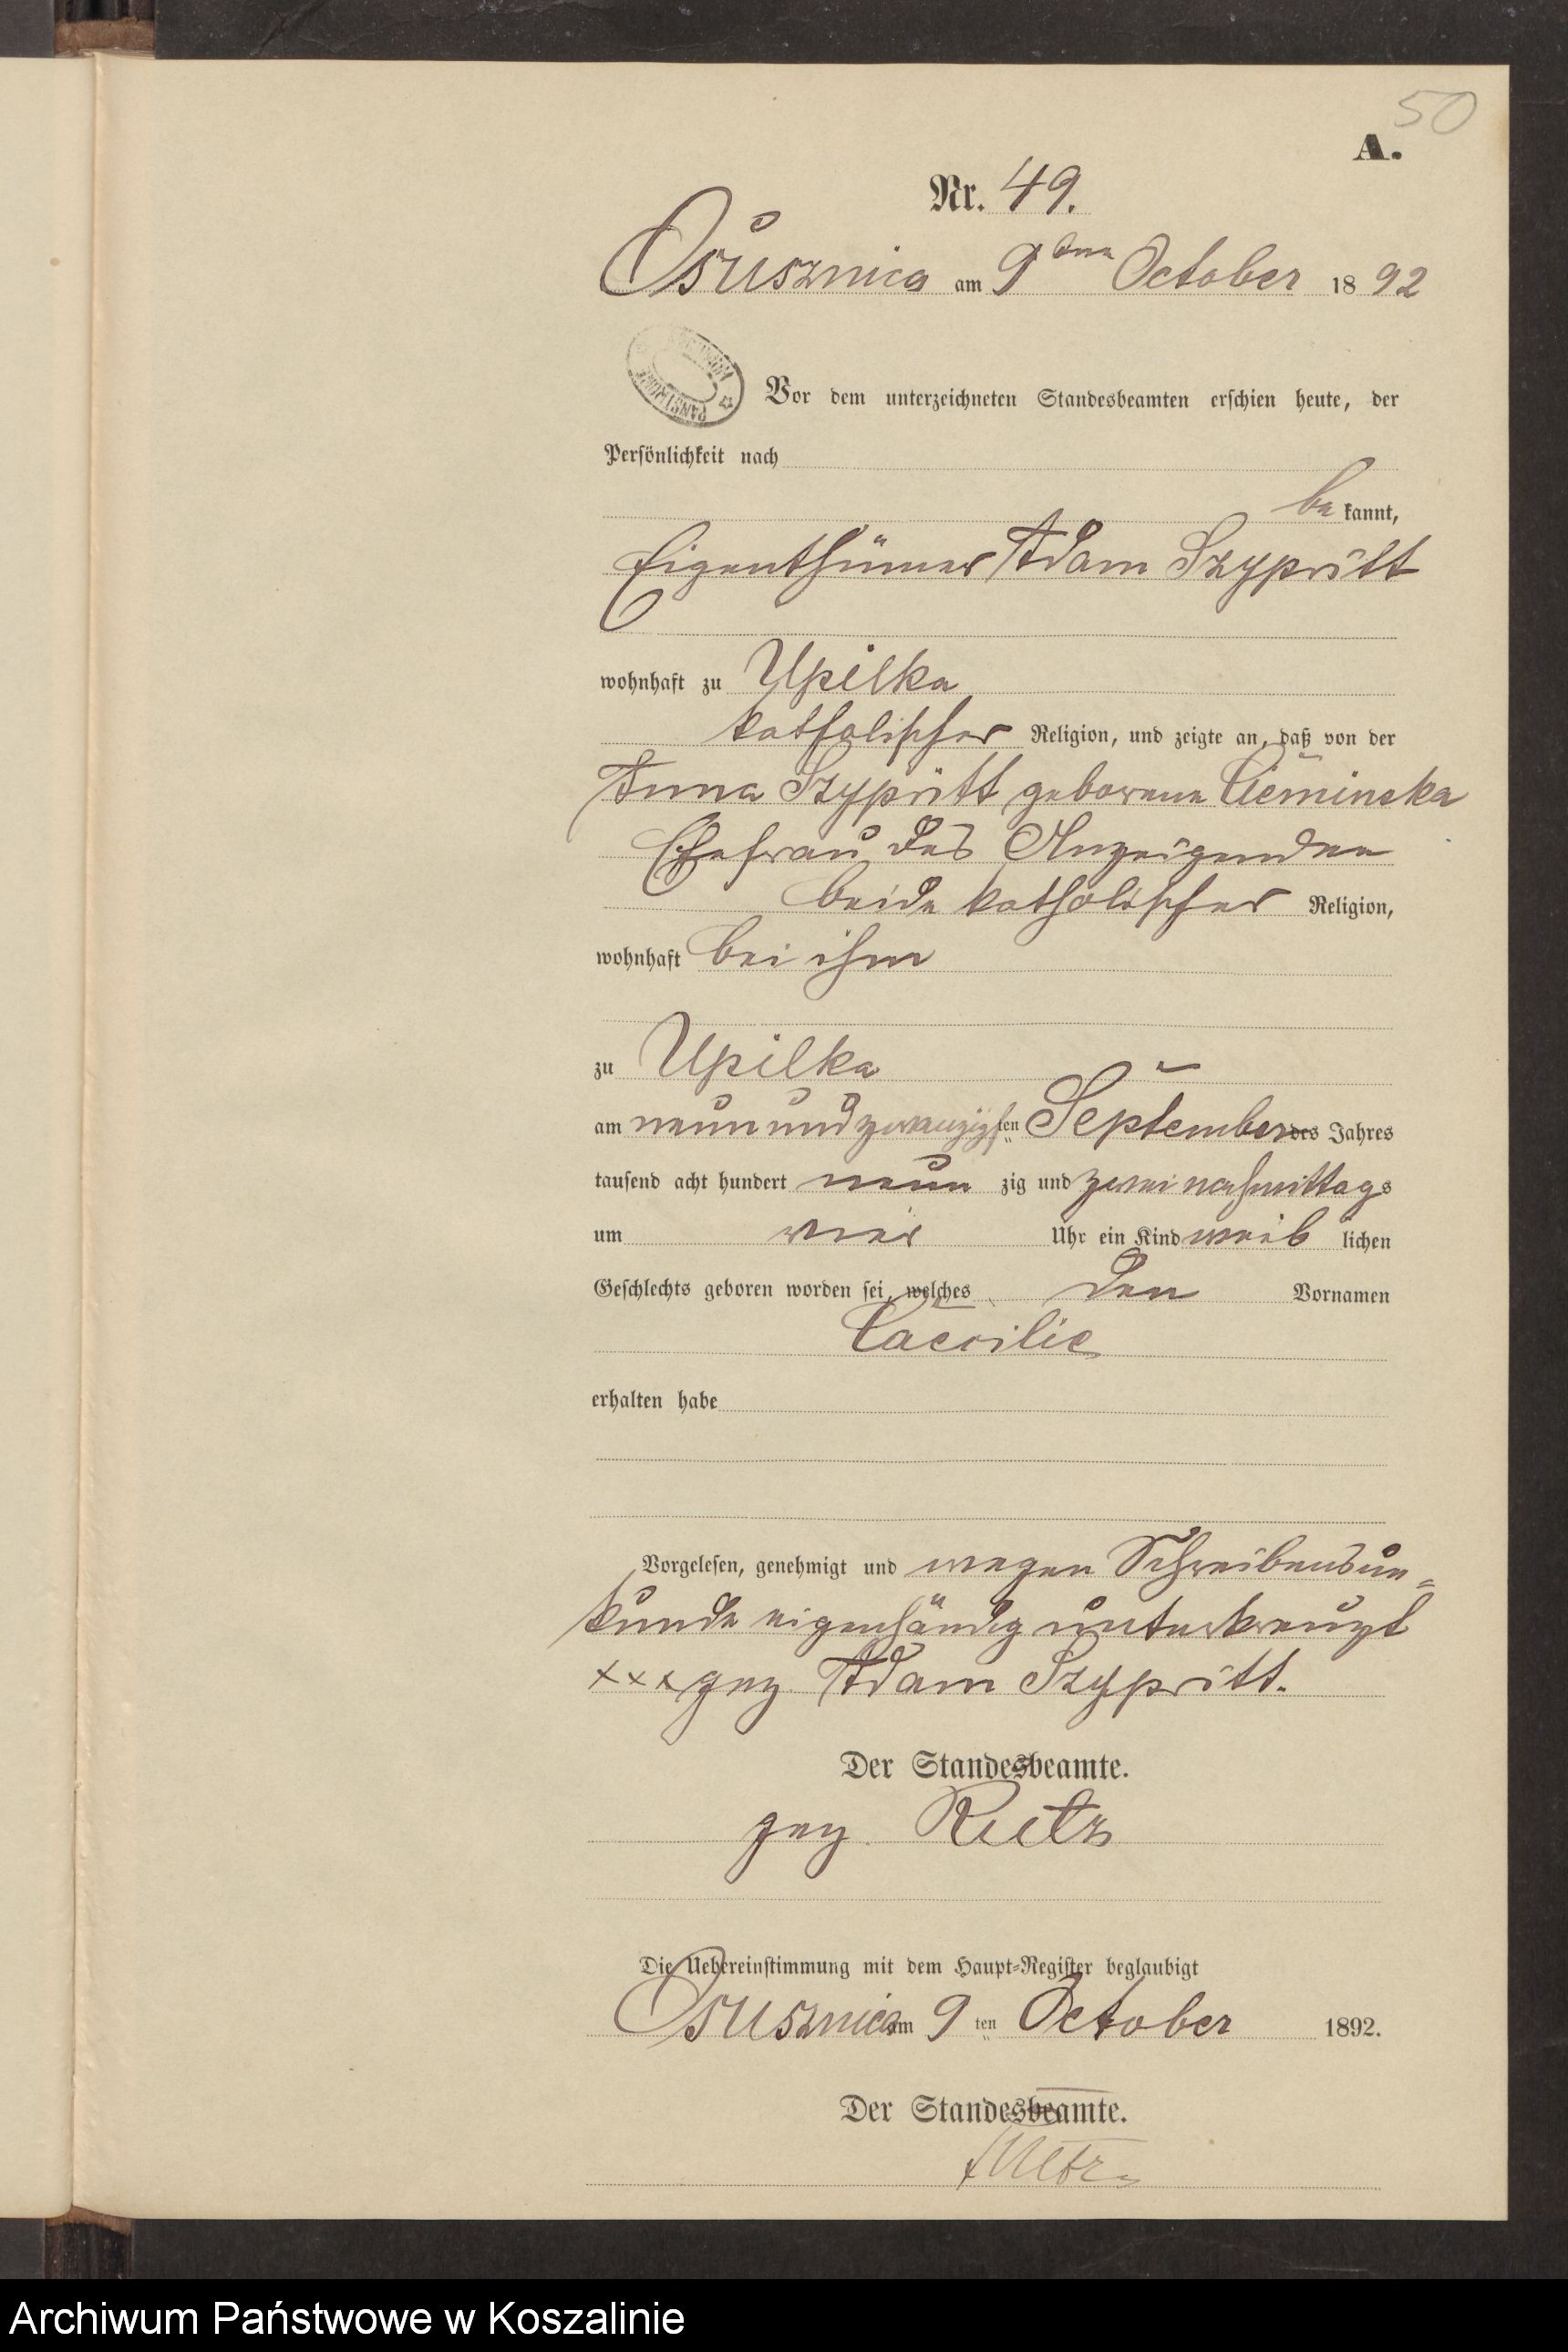 50
A.
Nr. 49.
Osusznica am 9ten October 1892
Vor dem unterzeichneten Standesbeamten erschien heute, der
Persönlichkeit nach
bekannt,
Eigenthümer Adam Szypritt
wohnhaft zu Upilka
katholischer Religion, und zeigte an, daß von der
Anna Szypritt geborene Cieminska
Ehefrau des Anzeigenden
beide katholischer Religion,
wohnhaft bei ihm
zu Upilka
am neunundzwanzigsten September des Jahres
tausend acht hundert neunzig und zwei nachmittags
um vier Uhr ein Kind weiblichen
Geschlechts geboren worden sei, welches den Vornamen
Caecilie
erhalten habe
Vorgelesen, genehmigt und wegen Schreibensun=
kunde eigenhändig unterkreuzt
xxx gez Adam Szypritt.
Der Standesbeamte.
gez. Rutz
Die Uebereinstimmung mit dem Haupt-Register beglaubigt
Osusznica am 9ten October 1892.
Der Standesbeamte.
Rutz
Archiwum Państwowe w Koszalinie